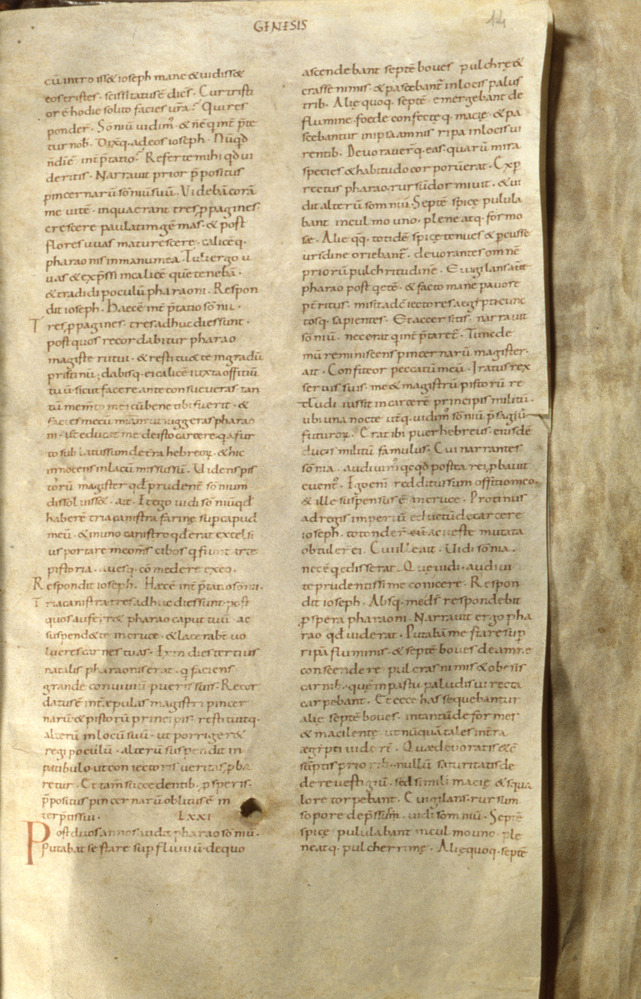 GENESIS
14
cū intro isset ioseph mane & uidiss&
eos tristes. sciscitatus ē dices. Cur tristi
or ē hodie solito facies ur̄a. Qui res
ponder. Somniū uidim'. & nē q int̄ p̄te
tur nob. Dixq. ad eos ioseph. Nūqd
n̄ dī ē int̄ p̄tatio. Referte mihi qd ui
deritis. Narrauit prior p̄positus
pincernarū somniū suū. Videbā corā
me uitē. in qua erant tres ppagines
crescere paulatim gēmas. & post
flores uuas maturescere. calicēq.
pharaonis in manu mea. Tuli ergo u
uas & exp̄ssi in calicē quē tenebā.
& tradidi poculū pharaoni. Respon
dit ioseph. Haec ē int̄ p̄tatio somnii.
Tres ppagines. tres adhuc dies sunt.
post quos recordabitur pharao
magisterii tui. & restitu& te in gradū
pristinū. dabisq. ei calicē iuxta officiū
tuū sicut facere ante consueueras. tan
tū memento mei cū bene tibi fuerit. &
facies mecū
to sublatus sum de tra hebreoꝝ. & hic
innocens in lacū missus sū. Videns pis
torū magister qd prudent̄ somnium
dissoluiss&. ait. Et ego uidi somniū qd
haberē tria canistra farine sup capud
meū. & in uno canistro qd erat excelsi
us portare me om̄s cibos q fiunt arte
pistoria. auesq. comedere ex eo.
Respondit ioseph. Haec ē int̄ p̄tatio somnii.
Tria canistra tres adhuc dies sunt. post
quos aufer& pharao caput tuū. ac
suspend& te in cruce. & lacerabt uo
lucres carnes tuas. Exin dies tertius
natalis pharaonis erat. q faciens
grande conuiuiū pueris suis. Recor
datus ē int̄ epulas magistri pincer
narū & pistorū principis. restituitq.
alterū in locū suū. ut porriger&
regi poculū. alterū suspendit in
patibulo ut coniectoris ueritas pba
retur. Et tam succedentib. psperis.
p̄positus pincernarū oblitus ē in
terp̄tis sui. LXXI
Post duos annos uidit pharao somniū.
Putabat se stare sup fluuiū de quo
ascendebant septē boues pulchre &
crasse nimis. & pascebant̄ in locis palus
trib. Alie quoq. septē emergebant de
flumine foede confecteq. macie. & pa
scebantur in ipsa amnis ripa in locis ui
rentib. Deuorauer̄q. eas quarū mira
species & habitudo corporū erat. Exp
rectus pharao rursū dormiuit. & ui
dit alterū somniū. Septē spice pulula
bant in culmo uno. plene atq. formo
se. Alie qq. totidē spice tenues & pcusse
uridine oriebant̄. deuorantes omnē
priorū pulchritudinē. Euigilans aūt
pharao post getē. & facto mane pauore
pt̄ritus. misit ad ōe iectores aegypti cunc
tosq. sapientes. Et accersitis. narrauit
somniū. nec erat q int̄ p̄taret̄. Tunc de
mū reminiscens pincernarū magister.
ait. Confiteor peccatū meū. Iratus rex
seruis suis. me & magistrū pistorū re
trudi iussit in carcerē principis militū.
ubi una nocte ut̄q. uidim' somniū p̄sagiū
futuroꝝ. Erat ibi puer hebreus. eiusdē
ducis militū famulus. Cui narrantes
somnia. audiuim' qcqd postea rei pbauit
euent'. Ego eni redditus sum offitio meo.
& ille suspensus ē in cruce. Protinus
ad regis imperiū eductū de carcere
ioseph. totonder̄. ac ueste mutata
obtuler̄ ei. Cui ille ait. Uidi somnia.
nec ē q edisserat. Que uidi. audiui
te prudentissime conicere. Respon
dit ioseph. Absq. me ds̄ respondebit
pspera pharaoni. Narrauit ergo pha
rao qd uiderat. Putabā me stare sup
ripā fluminis. & septē boues de amne
conscendere pulcras nimis & obesis
carnib. que in pastu paludis uirecta
carpebant. Et ecce has sequebantur
alie septē boues. in tantū deformes
& macilente. ut nūquā tales in tra
aegipti uiderī. Quae deuoratis &
sūptis priorib. nullū saturitatis de
dere uestigiū. sed simili macie & squa
lore torpebant. Euigilans. rursum
sopore depssus. uidi somniū. Septē
spice pululabant in culmo uno. ple
ne atq. pulcherrime. Alie quoq. septē